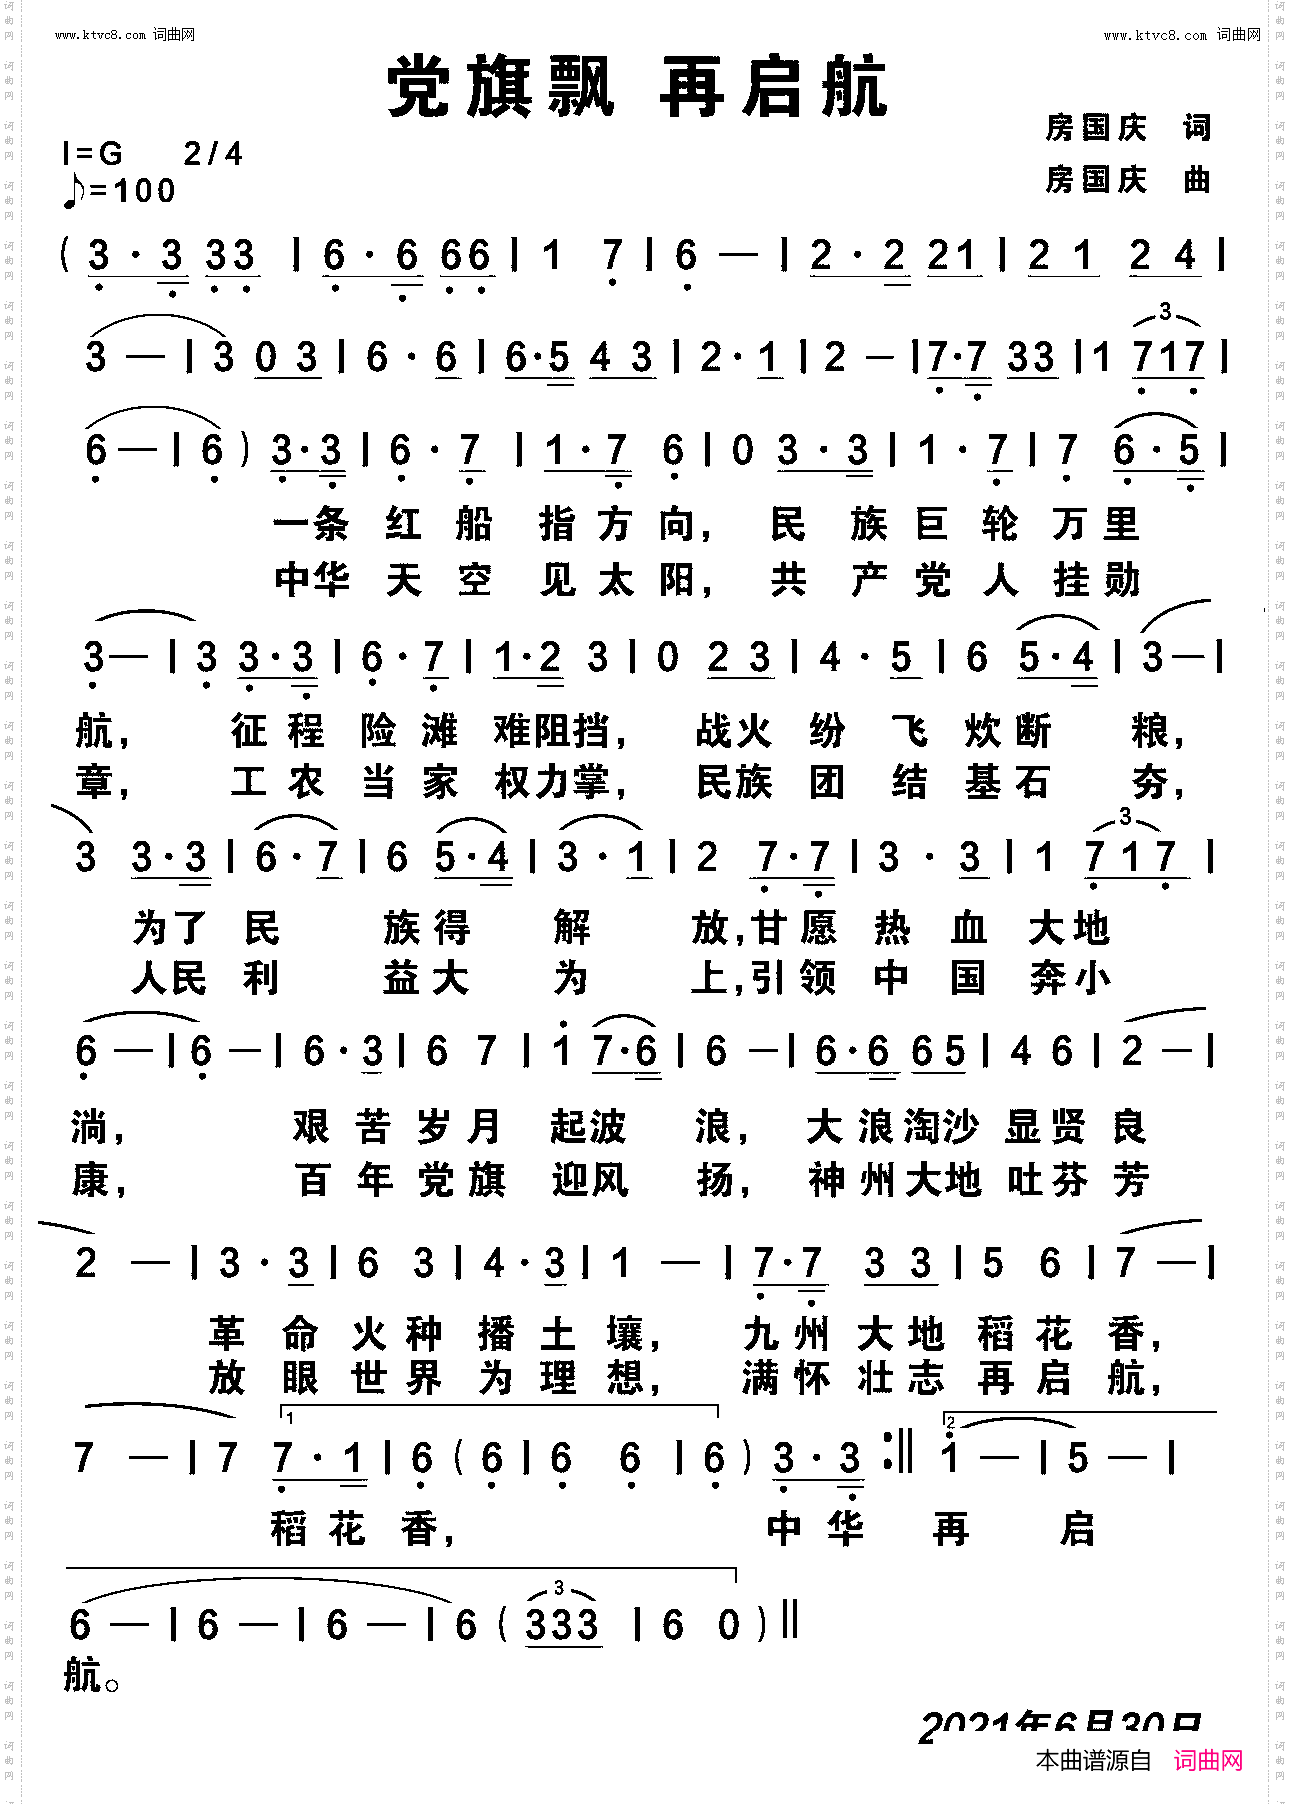 www.ktvc8.com 词曲网 www.ktvc8.com 词曲网
党旗飘 再启航
房国庆 词
1=G 2/4
♪=100
房国庆 曲
( 3 · 3 3 3 | 6 · 6 6 6 | 1 7 | 6 — | 2 · 2 2 1 | 2 1 2 4 |
3 — | 3 0 3 | 6 · 6 | 6 · 5 4 3 | 2 · 1 | 2 — | 7 · 7 3 3 | 1 7 1 7 |
6 — | 6 ) 3 · 3 | 6 · 7 | 1 · 7 6 | 0 3 · 3 | 1 · 7 | 7 6 · 5 |
一条 红 船 指方向, 民 族巨轮万里
中华 天 空 见太阳, 共 产党人挂勋
3 — | 3 3 · 3 | 6 · 7 | 1 · 2 3 | 0 2 3 | 4 · 5 | 6 5 · 4 | 3 — |
航, 征程 险滩 难阻挡, 战火 纷 飞 炊断 粮,
章, 工农 当家 权力掌, 民族 团 结 基石 夯,
3 3 · 3 | 6 · 7 | 6 5 · 4 | 3 · 1 | 2 7 · 7 | 3 · 3 | 1 7 1 7 |
为了 民 族得 解 放,甘愿 热 血 大地
人民 利 益大 为 上,引领 中 国 奔小
6 — | 6 — | 6 · 3 | 6 7 | 1 7 · 6 | 6 — | 6 · 6 6 5 | 4 6 | 2 — |
淌, 艰苦 岁月 起波 浪, 大浪淘沙 显贤 良
康, 百年 党旗 迎风 扬, 神州大地 吐芬 芳
2 — | 3 · 3 | 6 3 | 4 · 3 | 1 — | 7 · 7 3 3 | 5 6 | 7 — |
革命 火种 播土 壤, 九州 大地 稻花 香,
放眼 世界 为理 想, 满怀 壮志 再启 航,
7 — | 7 7 · 1 | 6 ( 6 | 6 6 | 6 ) 3 · 3 :|| 1 — | 5 — |
稻花 香, 中华 再 启
6 — | 6 — | 6 — | 6 ( 3 3 3 | 6 0 ) ||
航。
2021年6月30日
本曲谱源自 词曲网